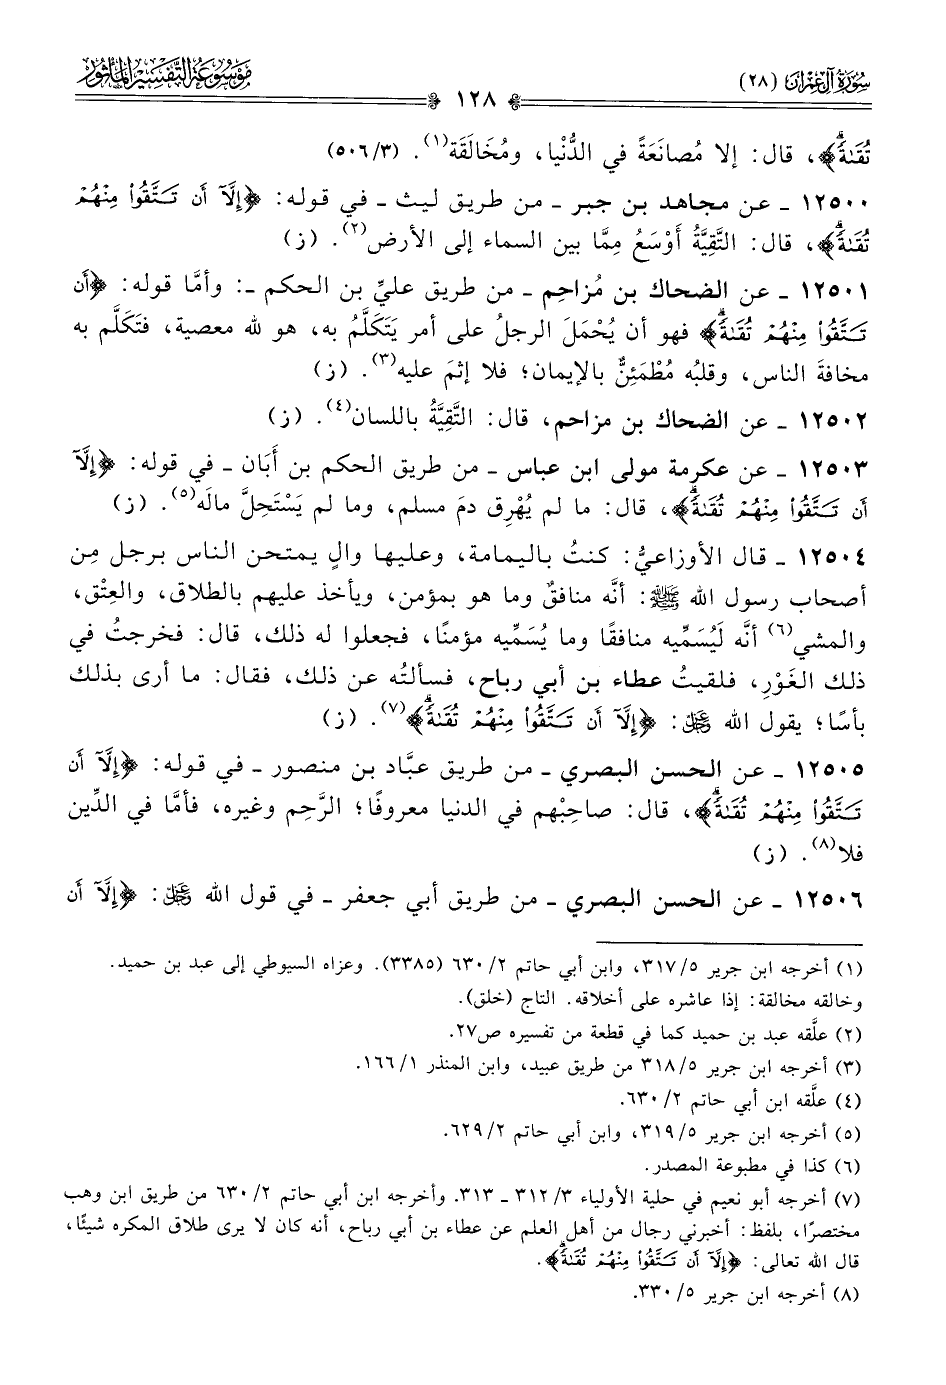 سُورَةُ آلِ عِمْرَان (٢٨)
١٢٨
مَوْسُوعَةُ التَّفْسِيرِ المَأْثُورِ
تُقَىٰةٗۗ﴾، قال: إلا مُصانَعَةً في الدُّنْيا، ومُخَالَقَة(١). (٥٠٦/٣)
١٢٥٠٠ ـ عن مجاهد بن جبر ـ من طريق ليث ـ في قوله: ﴿إِلَّآ أَن تَتَّقُواْ مِنْهُمْ
تُقَىٰةٗۗ﴾، قال: التَّقِيَّةُ أَوْسَعُ مِمَّا بين السماء إلى الأرض(٢). (ز)
١٢٥٠١ ـ عن الضحاك بن مُزاحِم ـ من طريق عليِّ بن الحكم ـ: وأمَّا قوله: ﴿أَن
تَتَّقُواْ مِنْهُمْ تُقَىٰةٗۗ﴾ فهو أن يُحْمَلَ الرجلُ على أمر يَتَكَلَّمُ به، هو لله معصية، فتَكلَّم به
مخافةَ الناس، وقلبُه مُطْمَئِنٌّ بالإيمان؛ فلا إثمَ عليه(٣). (ز)
١٢٥٠٢ ـ عن الضحاك بن مزاحم، قال: التَّقِيَّةُ باللسان(٤). (ز)
١٢٥٠٣ ـ عن عكرمة مولى ابن عباس ـ من طريق الحكم بن أَبَان ـ في قوله: ﴿إِلَّآ
أَن تَتَّقُواْ مِنْهُمْ تُقَىٰةٗۗ﴾، قال: ما لم يُهْرِق دمَ مسلم، وما لم يَسْتَحِلَّ مالَه(٥). (ز)
١٢٥٠٤ ـ قال الأوزاعيُّ: كنتُ باليمامة، وعليها والٍ يمتحن الناس برجل مِن
أصحاب رسول الله ﷺ: أنَّه منافقٌ وما هو بمؤمن، ويأخذ عليهم بالطلاق، والعِتْق،
والمشي(٦) أنَّه لَيُسَمِّيه منافقًا وما يُسَمِّيه مؤمنًا، فجعلوا له ذلك، قال: فخرجتُ في
ذلك الغَوْرِ، فلقيتُ عطاء بن أبي رباح، فسألتُه عن ذلك، فقال: ما أرى بذلك
بأسًا؛ يقول الله ﷻ: ﴿إِلَّآ أَن تَتَّقُواْ مِنْهُمْ تُقَىٰةٗۗ﴾(٧). (ز)
١٢٥٠٥ ـ عن الحسن البصري ـ من طريق عبَّاد بن منصور ـ في قوله: ﴿إِلَّآ أَن
تَتَّقُواْ مِنْهُمْ تُقَىٰةٗۗ﴾، قال: صاحِبْهم في الدنيا معروفًا؛ الرَّحِم وغيره، فأمَّا في الدِّين
فلا(٨). (ز)
١٢٥٠٦ ـ عن الحسن البصري ـ من طريق أبي جعفر ـ في قول الله ﷻ: ﴿إِلَّآ أَن
(١) أخرجه ابن جرير ٣١٧/٥، وابن أبي حاتم ٦٣٠/٢ (٣٣٨٥). وعزاه السيوطي إلى عبد بن حميد.
وخالقه مخالقة: إذا عاشره على أخلاقه. التاج (خلق).
(٢) علَّقه عبد بن حميد كما في قطعة من تفسيره ص٢٧.
(٣) أخرجه ابن جرير ٣١٨/٥ من طريق عبيد، وابن المنذر ١٦٦/١.
(٤) علَّقه ابن أبي حاتم ٦٣٠/٢.
(٥) أخرجه ابن جرير ٣١٩/٥، وابن أبي حاتم ٦٢٩/٢.
(٦) كذا في مطبوعة المصدر.
(٧) أخرجه أبو نعيم في حلية الأولياء ٣١٢/٣ ـ ٣١٣. وأخرجه ابن أبي حاتم ٦٣٠/٢ من طريق ابن وهب
مختصرًا، بلفظ: أخبرني رجال من أهل العلم عن عطاء بن أبي رباح، أنه كان لا يرى طلاق المكره شيئًا،
قال الله تعالى: ﴿إِلَّآ أَن تَتَّقُواْ مِنْهُمْ تُقَىٰةٗۗ﴾.
(٨) أخرجه ابن جرير ٣٣٠/٥.